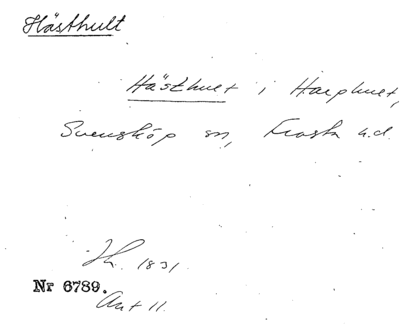 Hästhult
Hästhult i Harphult,
Svensköp sn, Frosta hd.
1831.
Nr 6789.
Ant 11.